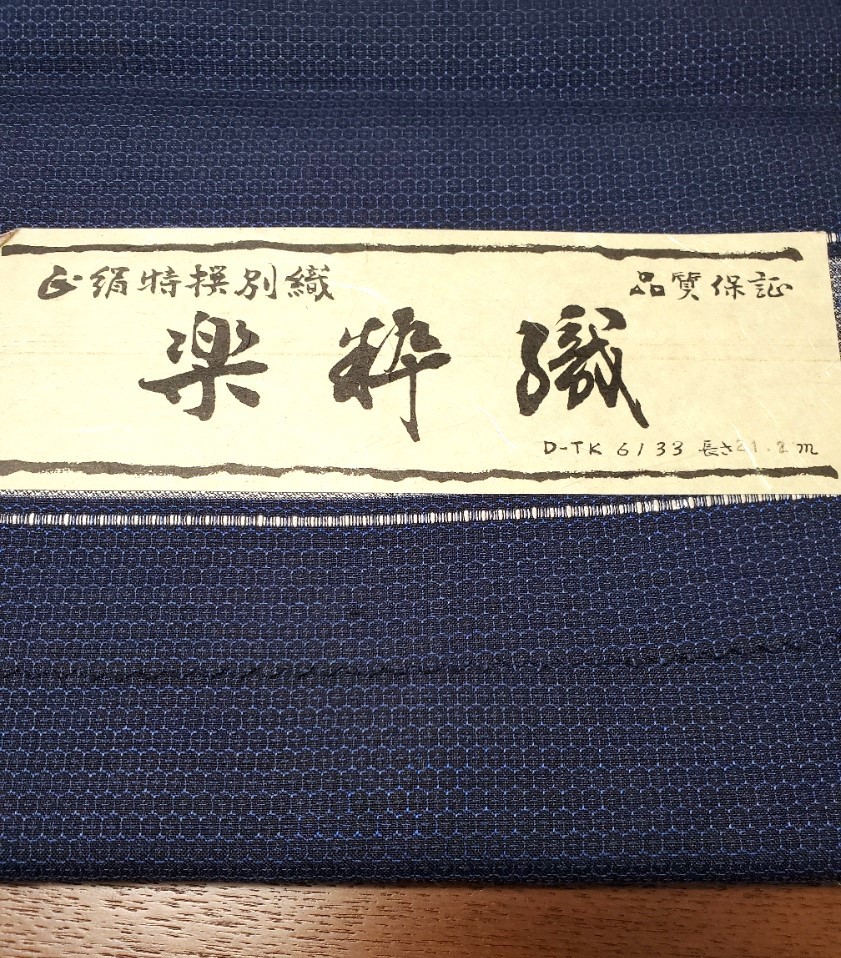 正絹特撰別織 品質保証
楽粋織
D-TK 6133 長さ21.2m